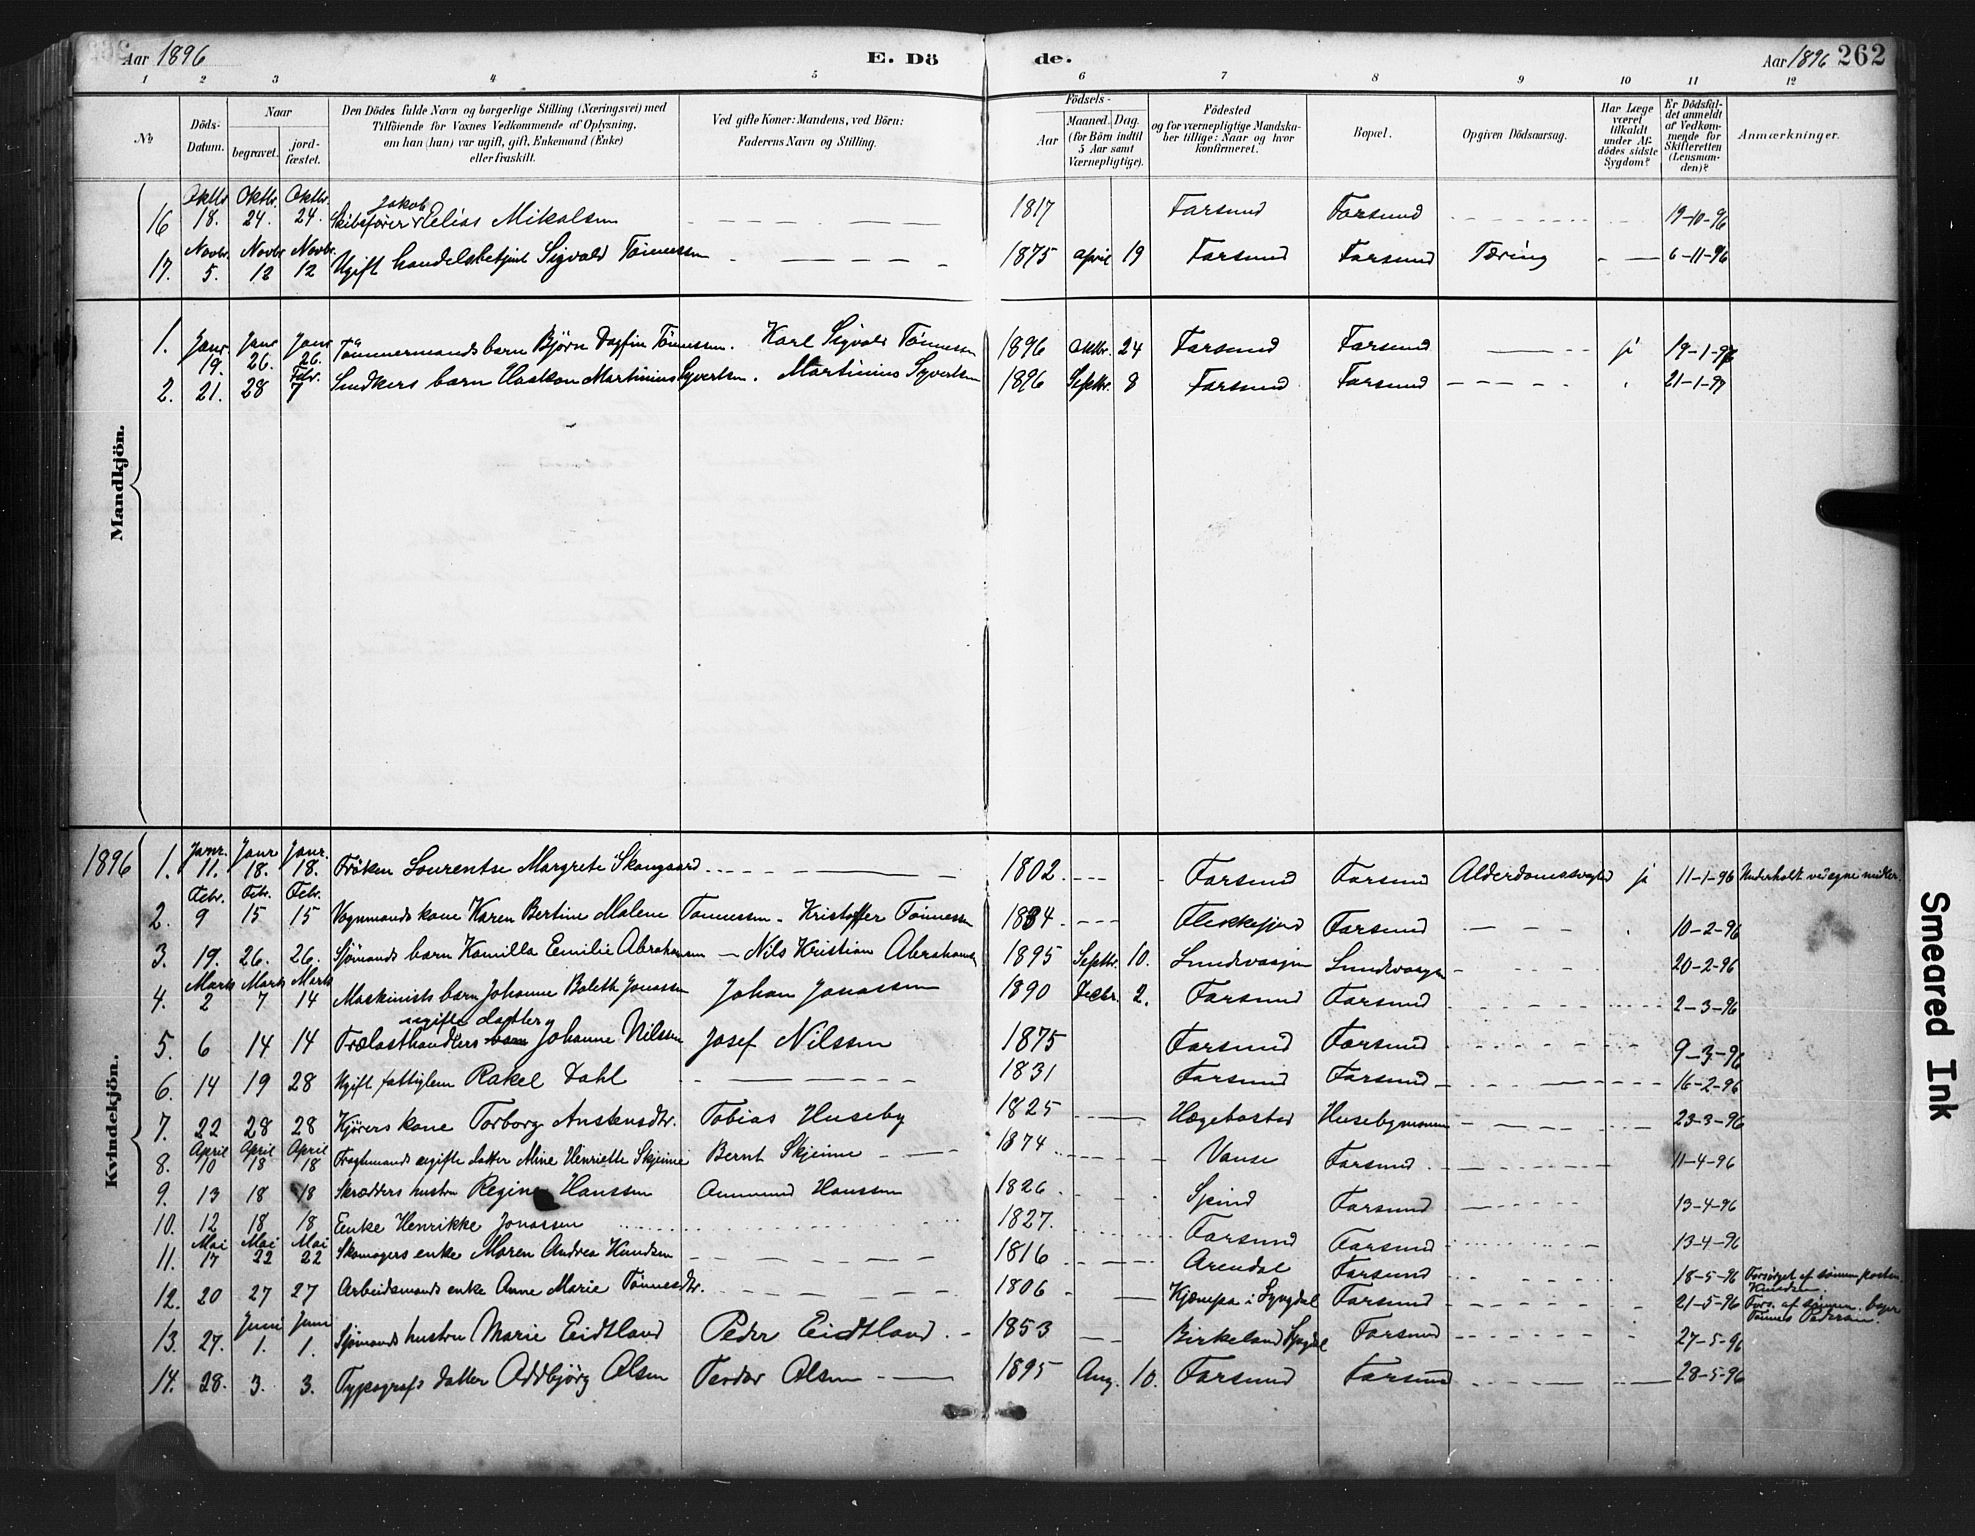 Aar 1896 E. Dö de. Aar 1896 262
1 2 3 4 5 6 7 8 9 10 11 12
№ Döds-Datum. Naar begravet. jord-fæstet. Den Dödes fulde Navn og borgerlige Stilling (Næringsvei) med Tilföiende for Voxnes Vedkommende af Oplysning, om han (hun) var ugift, gift, Enkemand (Enke) eller fraskilt. Ved gifte Koner: Mandens, ved Börn: Faderens Navn og Stilling. Födsels- Aar Maaned. Dag. (for Börn indtil 5 Aar samt Værnepligtige). Födested og for værnepligtige Mandska-ber tillige: Naar og hvor konfirmeret. Bopæl. Opgiven Dödsaarsag. Har Læge været tilkaldt under Af-dödes sidste Sygdom? Er Dödsfal-det anmeldt af Vedkom-mende for Skifteretten (Lensman-den)? Anmærkninger.
Mandkjön.
16 Oktbr. 18. Oktbr. 24. Oktbr. 24. Skibsfører Jakob Eelias Mikalsen 1817 Farsund Farsund 19-10-96
17. Novbr. 5. Novbr. 12 Novbr. 12 Ugift handelsbetjent Sigvald Tönnessen 1875 april 19 Farsund Farsund Tæring 6-11-96
1. Janr. 19. Janr 26. Janr 26. Tömmermands barn Björn Dagfin Tönnessen. Karl Sigvald Tönnessen 1896 Oktbr. 24 Farsund Farsund ja 19-1-97
2. 21. 28 Febr. 7 Smedkers barn Haakon Martinius Syvertsen. Martinius Syvertsen 1896 Septbr. 8 Farsund Farsund 21-1-97
Kvindekjön.
1896 1. Janr. 11. Janr 18. Janr. 18. Fröken Lourentse Margrete Skongaard 1802 Farsund Farsund Alderdomssvaghed ja 11-1-96 Underholdt ved egne midler.
2. Febr. 9 Febr. 15 Febr. 15 Vognmands kone Karen Bertine Malene Tönnessen - Kristoffer Tönnessen 1834 Flekkefjord Farsund 10-2-96
3. 19. 26. 26. Sjömands barn Kamilla Emilie Abrahamsen - Nils Kristian Abrahamsen 1895 Septbr. 10. Lundevaagen Lundevaagen 20-2-96
4. Marts 2 Marts 7 Marts 14 Maskinists barn Johanne Boleth Jonassen Johan Jonassen 1890 Decbr. 2. Farsund Farsund 2-3-96
5. 6 14 14 Trælasthandlers ugifte datter Johanne Nilssen Josef Nilssen 1875 Farsund Farsund 9-3-96
6. 14 19 28 Ugift fattiglem Rakel Dahl 1831 Farsund Farsund 16-2-96
7. 22 28 28 Kjörers kone Torborg Anstensdtr. Tobias Huseby 1825 Hægebostad Husebymoen 23-3-96
8. April 10 April 18 April 18 Fragtmands ugifte datter Aline Henriette Skjeime Bernt Skjeime 1874 Vanse Farsund 11-4-96
9. 13 18 18 Skrædders hustru Regine Hanssen Ammund Hanssen 1826 Spind Farsund 13-4-96
10. 12 18 18 Eenke Henrikke Jonassen 1827. Farsund Farsund 13-4-96
11. Mai 17 Mai 22 Mai 22 Skomagers enke Maren Andrea Knudsen 1816 Arendal Farsund 18-5-96 Forsörget af sönnen Knudsen.
12. 20 27 27 Arbeidsmands enke Anne Marie Tönnesdtr. 1806 Kjæmpa i Lyngdal Farsund 21-5-96 Fors. af sönnen bager Tönnes Pedersen.
13. 27. Juni 1. Juni 1. Sjömands hustru Marie Eidtland Peder Eidtland 1853 Birkeland Lyngdal Farsund 27-5-96
14. 28. 3. 3. Typografs datter Oddbjörg Olsen Teodor Olsen 1895 Aug. 10. Farsund Farsund 28-5-96
Smeared Ink